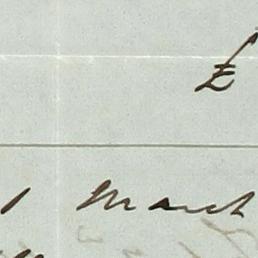 £
1 March